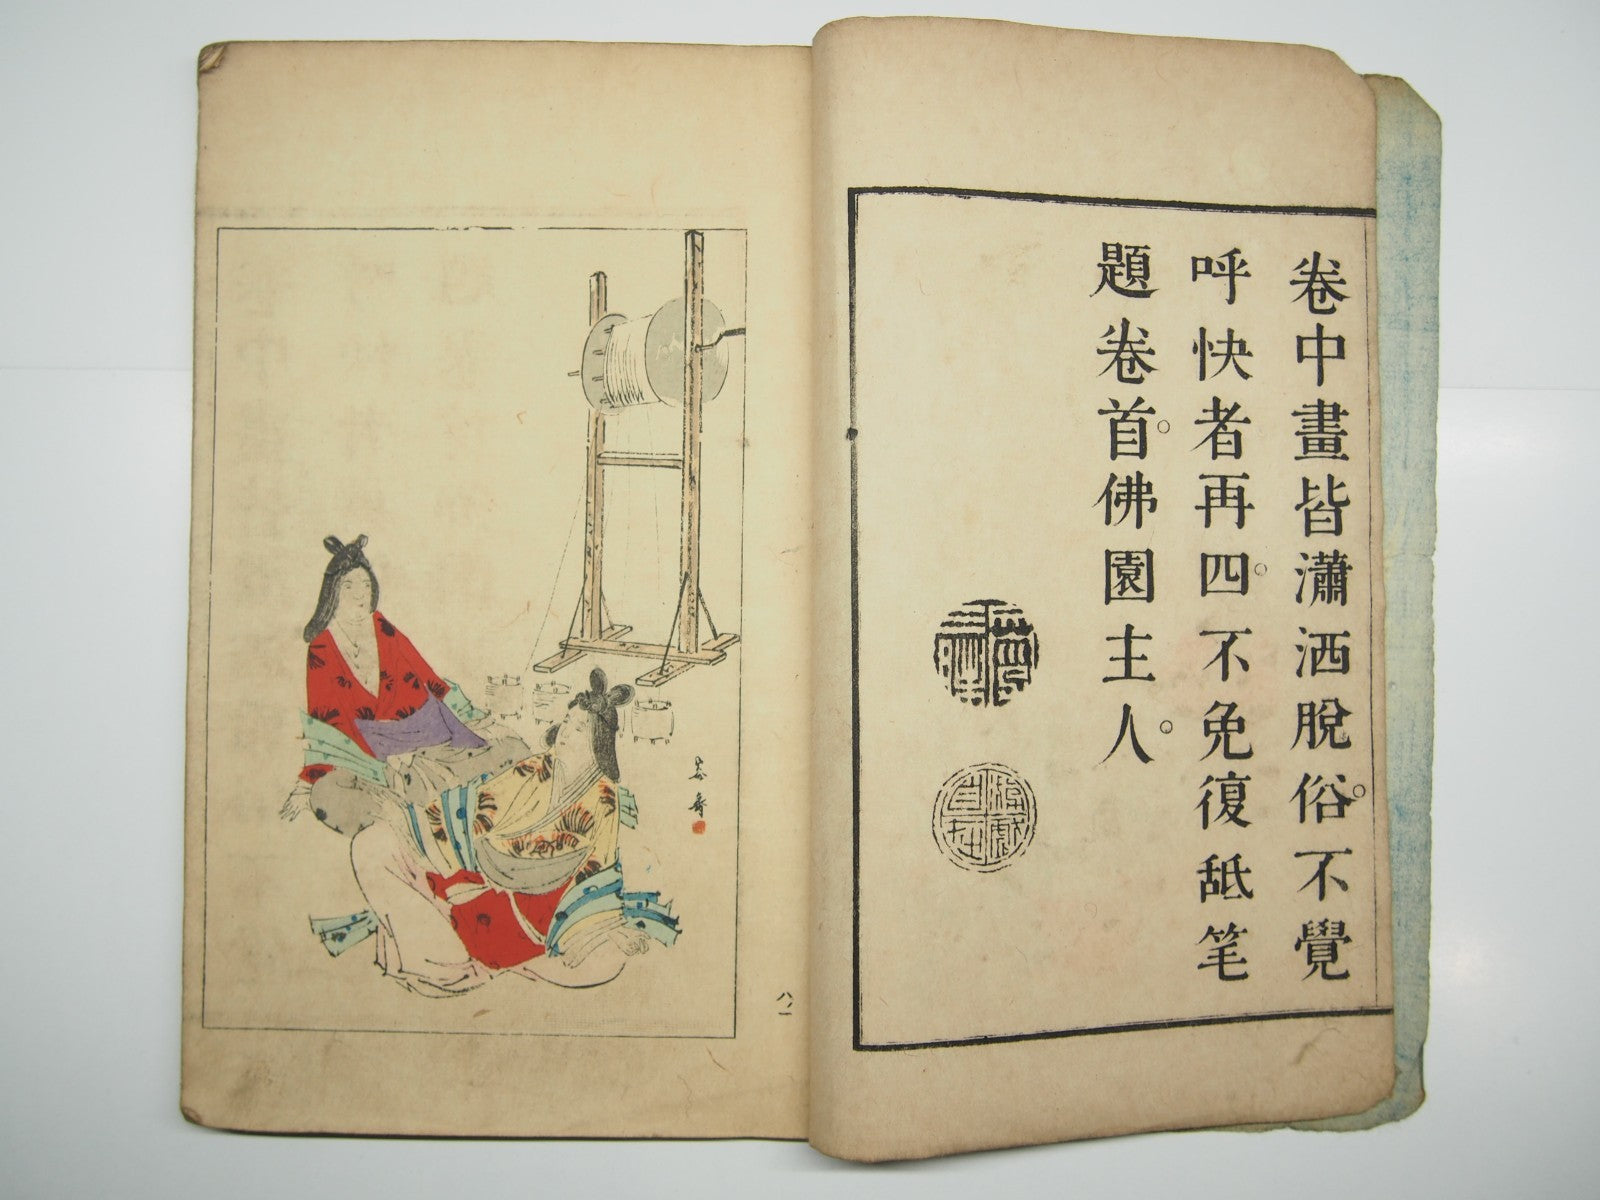 卷中畫皆瀟洒脫俗。不覺
呼快者再四。不免復舐笔
題卷首。佛園主人。